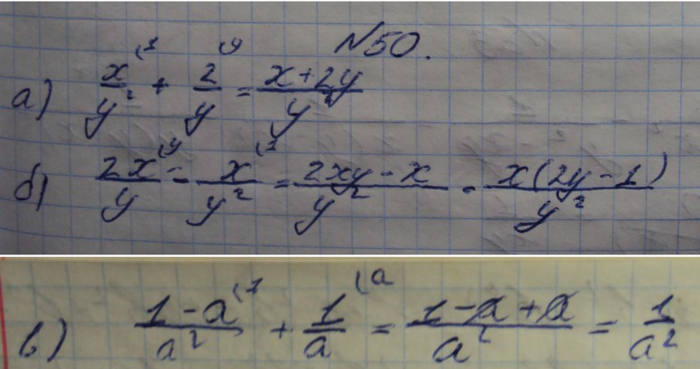 №50.
а) x/y² (1 + 2/y (y = x+2y/y²
б) 2x/y (y - x/y² (1 = 2xy-x/y² = x(2y-1)/y²
в) 1-a/a² (1 + 1/a (a = 1-a+a/a² = 1/a²